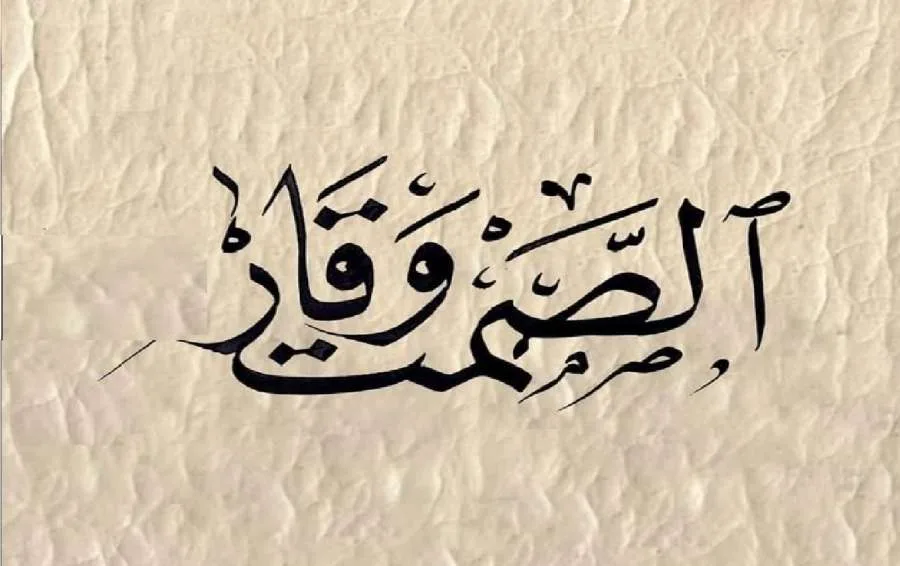 ٱلصَّمْت وَقَارْ